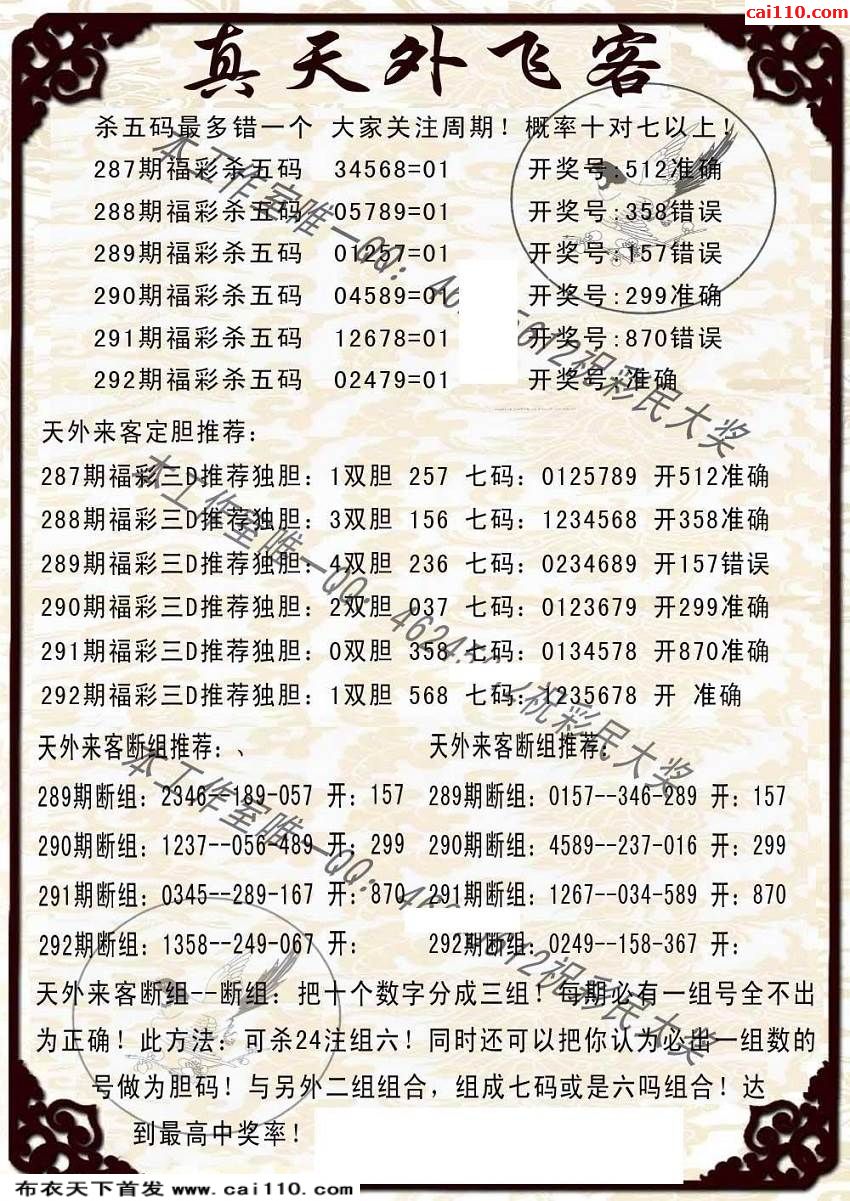 cai110.com
真天外飞客
杀五码最多错一个 大家关注周期！概率十对七以上！
287期福彩杀五码 34568=01 开奖号:512准确
288期福彩杀五码 05789=01 开奖号:358错误
289期福彩杀五码 01257=01 开奖号:157错误
290期福彩杀五码 04589=01 开奖号:299准确
291期福彩杀五码 12678=01 开奖号:870错误
292期福彩杀五码 02479=01 开奖号:准确
天外来客定胆推荐：
287期福彩三D推荐独胆：1双胆 257 七码：0125789 开512准确
288期福彩三D推荐独胆：3双胆 156 七码：1234568 开358准确
289期福彩三D推荐独胆：4双胆 236 七码：0234689 开157错误
290期福彩三D推荐独胆：2双胆 037 七码：0123679 开299准确
291期福彩三D推荐独胆：0双胆 358 七码：0134578 开870准确
292期福彩三D推荐独胆：1双胆 568 七码：1235678 开 准确
天外来客断组推荐：、 天外来客断组推荐：
289期断组：2346--189-057 开：157 289期断组：0157--346-289 开：157
290期断组：1237--056-489 开：299 290期断组：4589--237-016 开：299
291期断组：0345--289-167 开：870 291期断组：1267--034-589 开：870
292期断组：1358--249-067 开： 292期断组：0249--158-367 开：
天外来客断组--断组：把十个数字分成三组！每期必有一组号全不出
为正确！此方法：可杀24注组六！同时还可以把你认为必出一组数的
号做为胆码！与另外二组组合，组成七码或是六吗组合！达
到最高中奖率！
本工作室唯一QQ： 祝彩民大奖
本工作室唯一QQ： 祝彩民大奖
本工作室唯一QQ： 祝彩民大奖
布衣天下首发 www.cai110.com